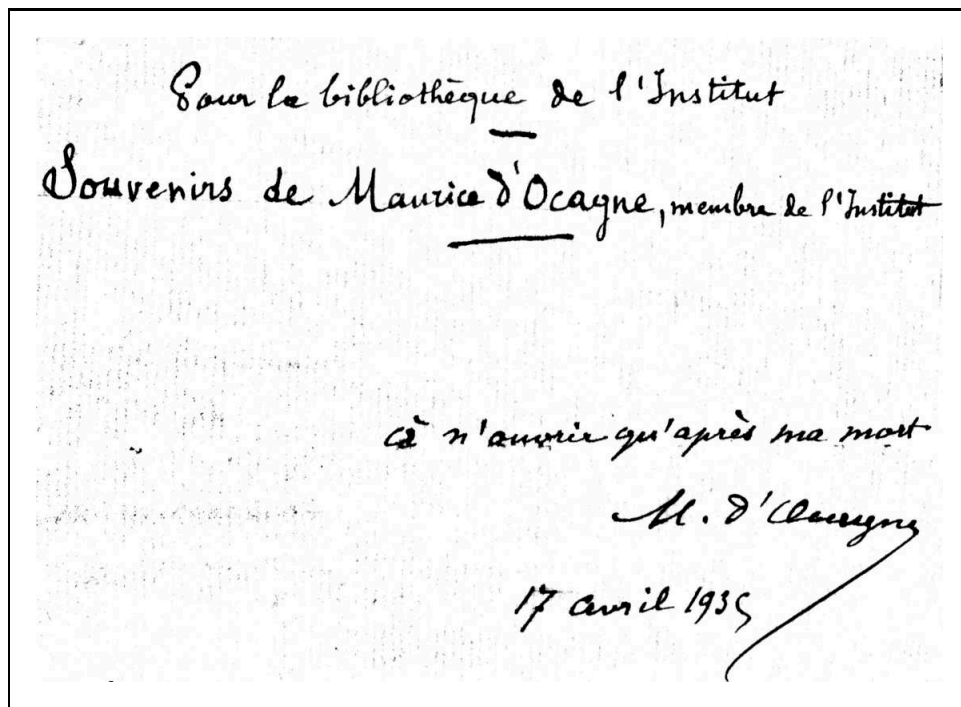 Pour la bibliothèque de l'Institut
Souvenirs de Maurice d'Ocagne, membre de l'Institut
à n'ouvrir qu'après ma mort
M. d'Ocagne
17 avril 1935